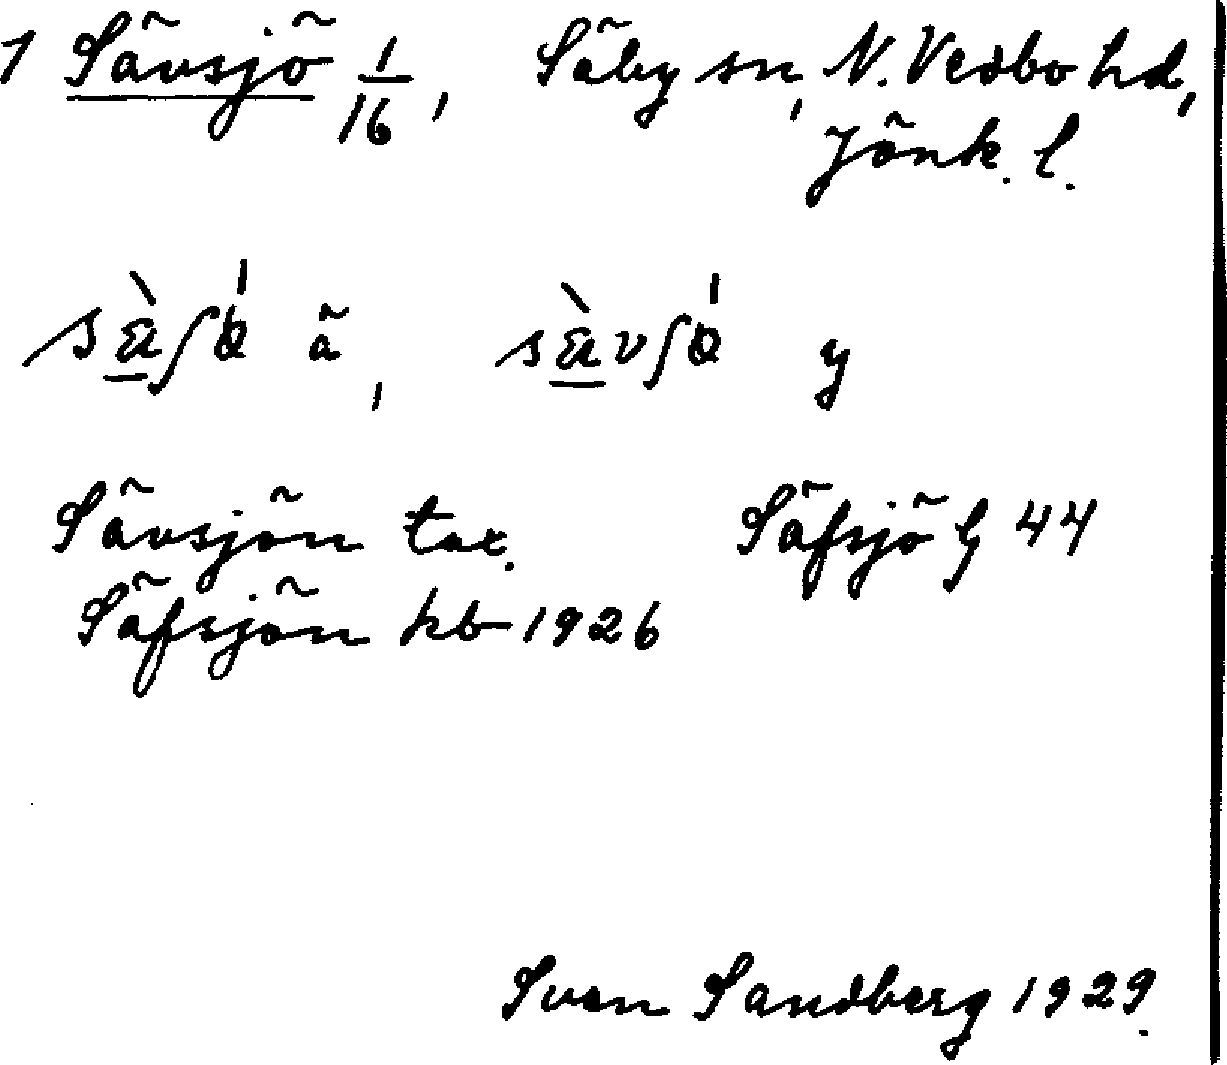 1 Sävsjö 1/16, Säby sn, N. Vedbo hd,
Jönk. l.
sæ̀ʃɵ́ ä, sæ̀vʃɵ́ y
Sävsjön tax. Säfsjö G 44
Säfsjön kb 1926
Sven Sandberg 1929.